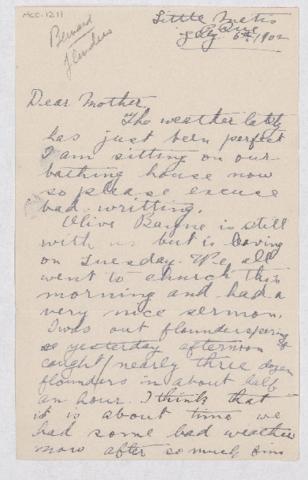 ACC-1211
Bernard
Flenders
Little Metis
Que
July 6th 1902
Dear Mother,
The weather lately
has just been perfect
I am sitting on our
bathing house now
so please excuse
bad writting.
Olive Bayne is still
with us but is leaving
on Tuesday. We all
went to church this
morning and had a
very nice sermon.
I was out flounderspearing
yesterday afternoon &
caught nearly three dozen
flounders in about half
an hour. I think that
it is about time we
had some bad weather
now after so much fine